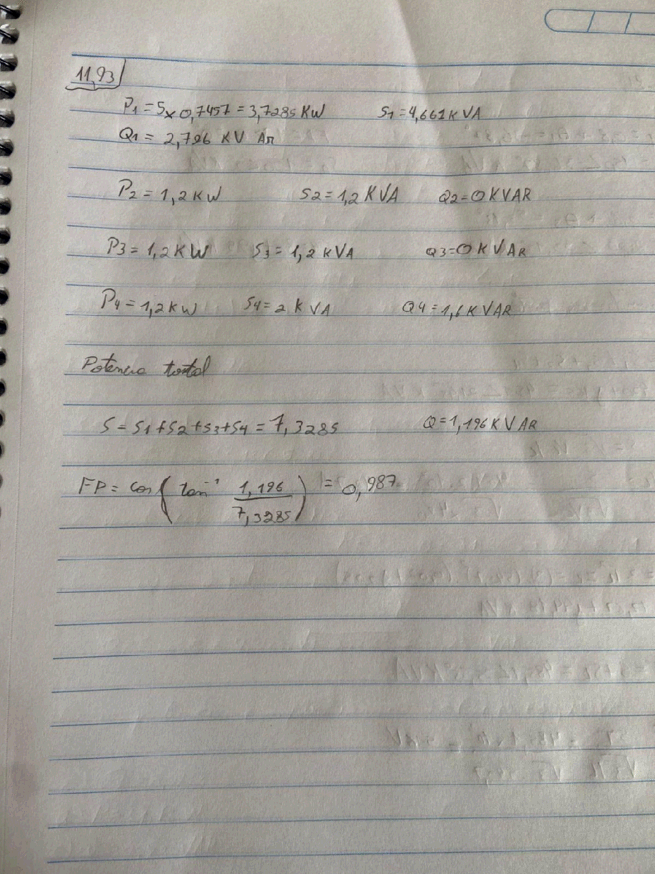 11,93
P1 = 5 x 0,7457 = 3,7285 KW S1 = 4,661 K VA
Q1 = 2,796 KV AR
P2 = 1,2 KW S2 = 1,2 KVA Q2 = 0 KVAR
P3 = 1,2 KW S3 = 1,2 KVA Q3 = 0 KVAR
P4 = 1,2 KW S4 = 2 K VA Q4 = 1,6 KVAR
Potencia tootal
S = S1 + S2 + S3 + S4 = 7,3285 Q = 1,196 KVAR
FP = cos ( tan⁻¹ 1,196 / 7,3285 ) = 0,987